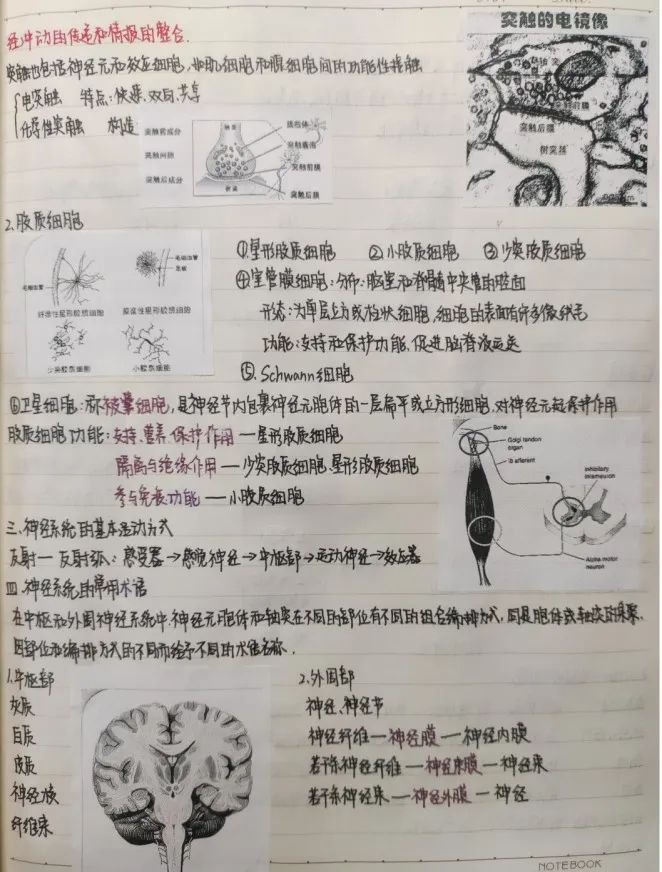 经冲动的传递和情报的整合.
突触的电镜像
突触也包括神经元和效应细胞,如肌细胞和腺细胞间的功能性接触
电突触 特点:快速、双向、共享
化学性突触 构造
突触前成分
突触间隙
突触后成分
轴突
线粒体
突触囊泡
突触前膜
突触后膜
树突
轴突
突触前膜
突触后膜
树突茎
2.胶质细胞
毛细血管
毛细血管
纤维性星形胶质细胞
原浆性星形胶质细胞
少突胶质细胞
小胶质细胞
①星形胶质细胞 ②小胶质细胞 ③少突胶质细胞
④室管膜细胞:分布:脑室和脊髓中央管的腔面
形态:为单层立方或柱状细胞,细胞的表面有许多微绒毛
功能:支持和保护功能,促进脑脊液运送
⑤.Schwann细胞
⑥卫星细胞:亦称被囊细胞,是神经节内包裹神经元胞体的一层扁平或立方形细胞,对神经元起保护作用
胶质细胞功能:支持、营养、保护作用—星形胶质细胞
隔离与绝缘作用—少突胶质细胞、星形胶质细胞
参与免疫功能—小胶质细胞
Bone
Golgi tendon
organ
Ib afferent
Inhibitory
interneuron
Alpha motor
neuron
三.神经系统的基本活动方式
反射—反射弧:感受器→感觉神经→中枢部→运动神经→效应器
四.神经系统的常用术语
在中枢和外周神经系统中,神经元胞体和轴突在不同的部位有不同的组合编排方式,同是胞体或轴突的集聚,
因部位和编排方式的不同而给予不同的术语名称.
1.中枢部
灰质
白质
皮质
神经核
纤维束
2.外周部
神经、神经节
神经纤维—神经膜—神经内膜
若干条神经纤维—神经束膜—神经束
若干条神经束—神经外膜—神经
NOTEBOOK